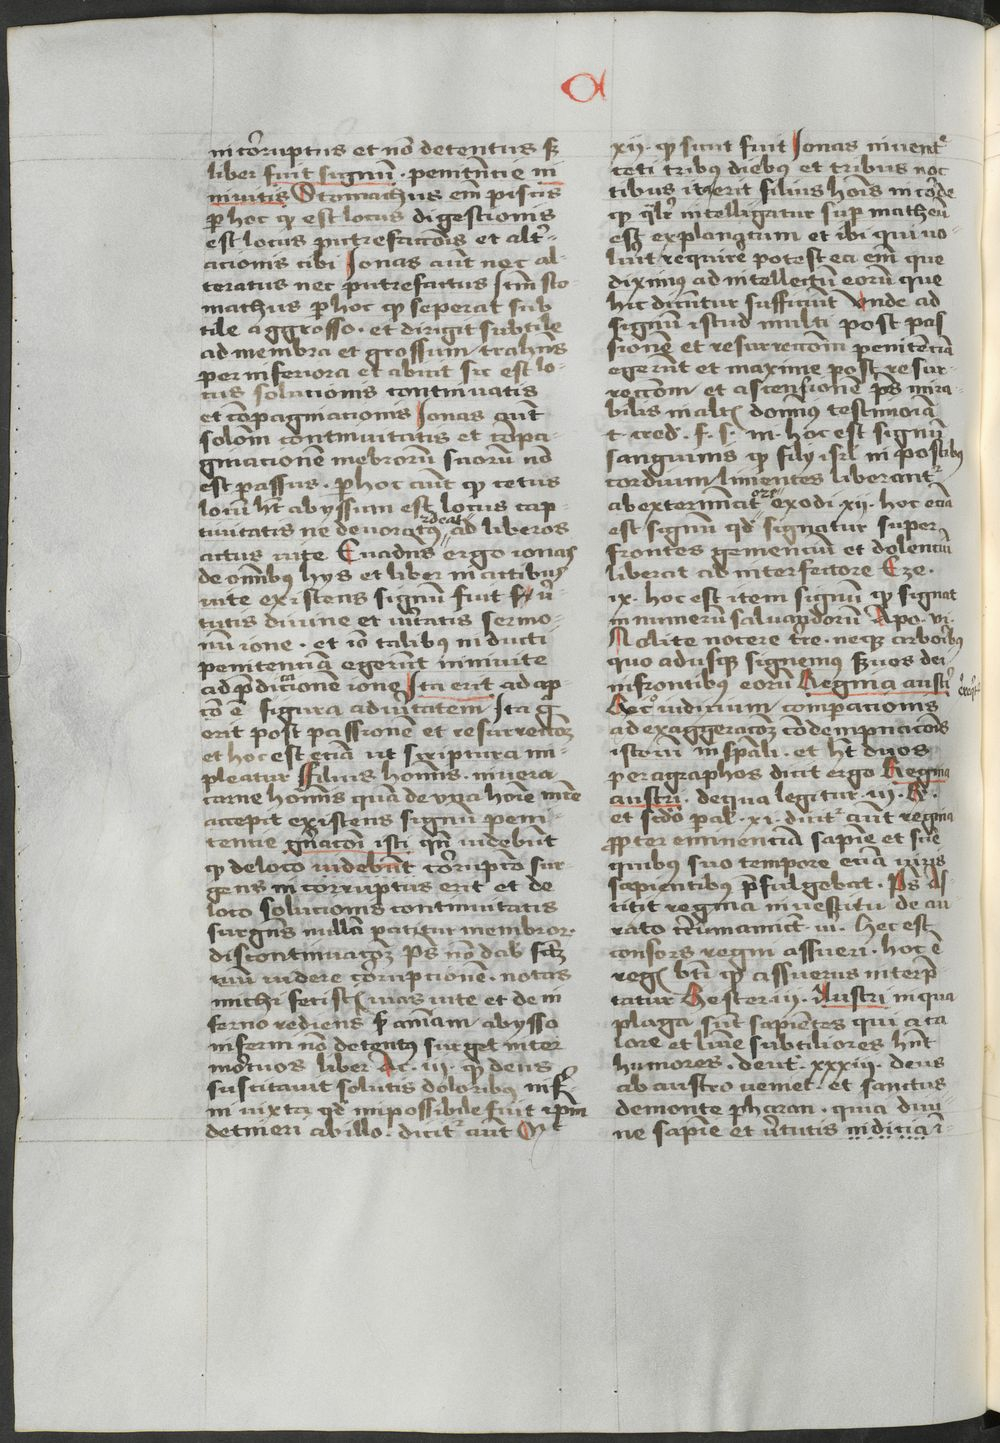 a
in corruptus et nō detentus sꝫ
liber fuit signū · penitēntie in
niuitis Stomachus em̄ piscis
ꝑ hoc ꝙ est locus digestionis
est locus putrefaccōis et alt̄
acionis cibi Jonas aut̄ nec al
teratus nec putrefactus Itm̄ sto
machus ꝑ hoc ꝙ seperat sub
tile a ggrosso · et dirigit subtile
ad membra et grossum trahens
per inferiora et abicit sic est lo
cus solucionis continuatis
et cōpaginacionis Jonas aut̄
solom̄ continuitatis et cōpa
ginacionē mēbrorū suorū nō
est passus · ꝑ hoc aut̄ ꝙ cetus
locū hꝫ abyssum est locus cap
tiuitatis ne deuoratus ad liberos
actus uite Euadēs ergo ionas
de omībus hys et liber in actibus
uite existens signū fuit u̇
tutis diuine et u̇itatis sermo
nū ione · et iō talibus in ducti
penitentiā egerūt niniuite
ad p̄dicacionē ione Ita erit
erit post passionē et resurrectōꝫ
et hoc est etiā ut scriptura im
pleatur Filius hominis · in uera
carne hominis quā de uirgine
accepit existens signū peni
tentie gn̄acōni isti qn̄ uidebūt
ꝙ de loco uidebūt corupcō sur
gens in corruptus erit et de
loco solucionis continuitatis
surgens nullā patitur membror
discontinuacōꝫ p̄s nō dab̄ sc̄ꝫ
tuū uidere corrupcionē · notas
michi fecisti uias uite et de in
ferno rediens ꝑ animam abysso
inferni nō detentus surget inter
mortuos liber Ac · ii · quē deus
suscitauit solutis doloribus inf̄
ni iuxta qd̄ impossibile fuit ipm̄
detineri ab illo · dicit aut̄ Mt
xii · ꝙ sicut fuit Jonas in uent̄
ceti tribus diebus et tribus noc
tibus it erit filius hōis in corde
ꝙ qlr̄ intelligatur sup matheū
est explanatum et ibi qui uo
luit requirere potest ea em̄ que
diximus ad intellectū eorū que
hic dicūtur sufficiūt Unde ad
signū istud multi post pas
sionē et resurrectōm penitēciā
egerūt et maxime post resur
rectōm et ascensionē p̄s mira
bilis in altis dominus testimoiā
t cred · f · s · ni · hoc est signū
sanguinis ꝙ filij isrl in postibus
cordium linientes liberant̄
ab extermināt exodi · xii · hoc etiā
est signū qd̄ signatur super
frontes gemenciū et dolenciū
liberat ab interfectore Eze ·
ix · hoc est item signū ꝙ signat
in numerū saluandorū Apo · vi ·
Nolite nocere tr̄e · neqꝫ arboribus
quo adusqꝫ signemus seruos dei
in frontibus eorū Regina austri
Hec iudicium comperacionis
ad exaggeracōꝫ cōdempnacōnis
istorū in spāli · et hꝫ duos
peragraphos dicit ergo Regina
austri · de qua legitur · iii · R ·
et scd̄o paral · xi · dicit̄ aut̄ regina
propter eminenciā sapiē et sue
quibus suo tempore etiā uiris
sapientibus p̄fulgebat · P̄s As
titit regina in uestitu de au
rato circumamict · iii · hec est
consors regni assueri · hoc ē
regis bt̄i ꝙ assuerus interp̄
tatur Hester · ii · Austri in qua
plaga sunt sapientes qui a ca
lore et lumie subtiliores hn̄t
humores · deut · xxxiii · deus
ab austro ueniet · et sanctus
de monte pharan · quia diui
ne sapiē et u̇tutis indicia